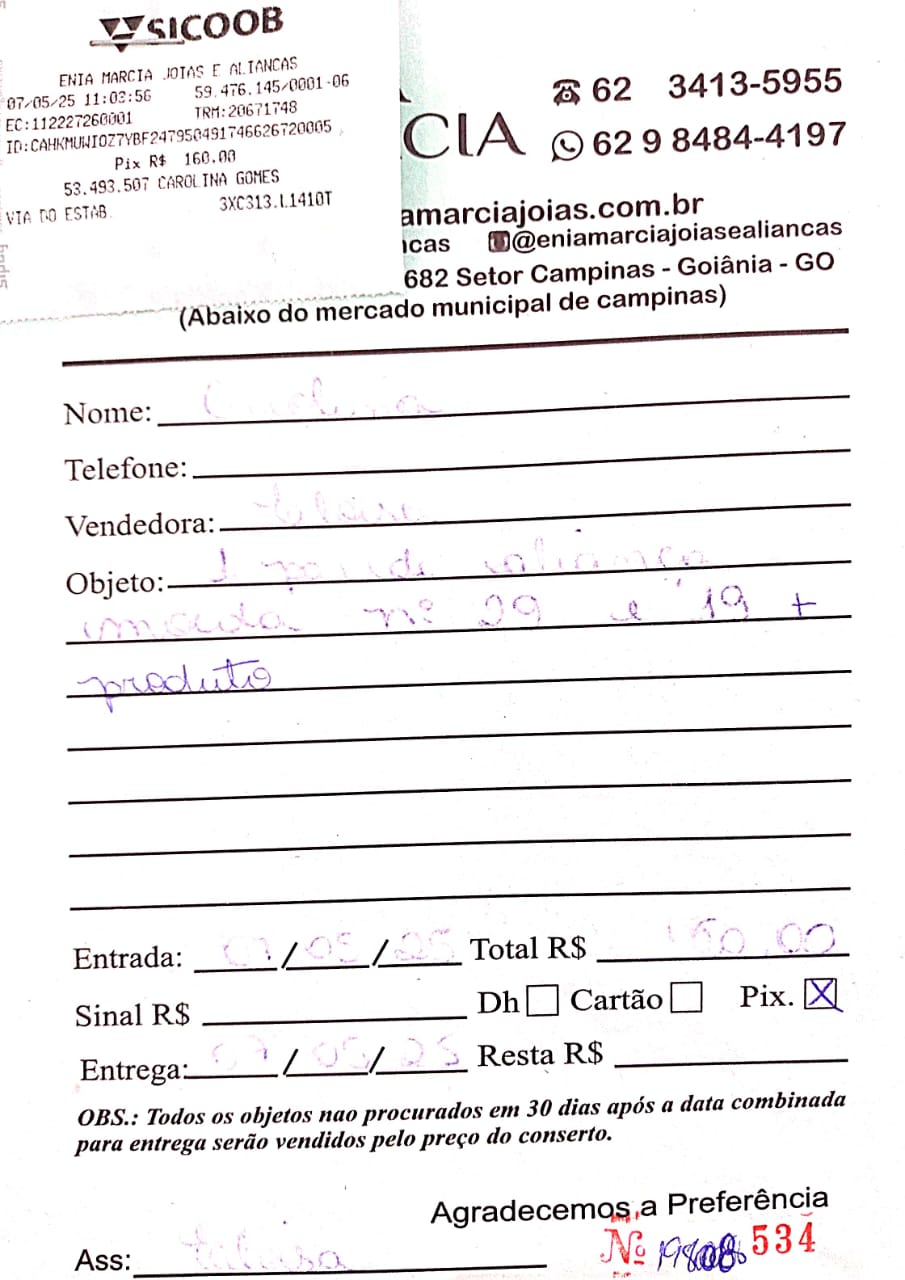 SICOOB
ENIA MARCIA JOIAS E ALIANCAS
07/05/25 11:03:56 59.476.145/0001-06
EC:112227260001 TRM:20671748
ID:CAHKMUWIOZ7YBF247950491746626720005
Pix R$ 160.00
53.493.507 CAROLINA GOMES
VIA DO ESTAB. 3XC313.L1410T
CIA
62 3413-5955
62 9 8484-4197
amarciajoias.com.br
ncas @eniamarciajoiasealiancas
682 Setor Campinas - Goiânia - GO
(Abaixo do mercado municipal de campinas)
Nome: Carolina
Telefone:
Vendedora:
Objeto: 1 par de aliança
moeda nº 29 e 19 +
produto
Entrada: 07/05/25 Total R$ 160,00
Sinal R$ Dh Cartão Pix. X
Entrega: 07/05/25 Resta R$
OBS.: Todos os objetos nao procurados em 30 dias após a data combinada
para entrega serão vendidos pelo preço do conserto.
Agradecemos a Preferência
Nº 534
Ass: